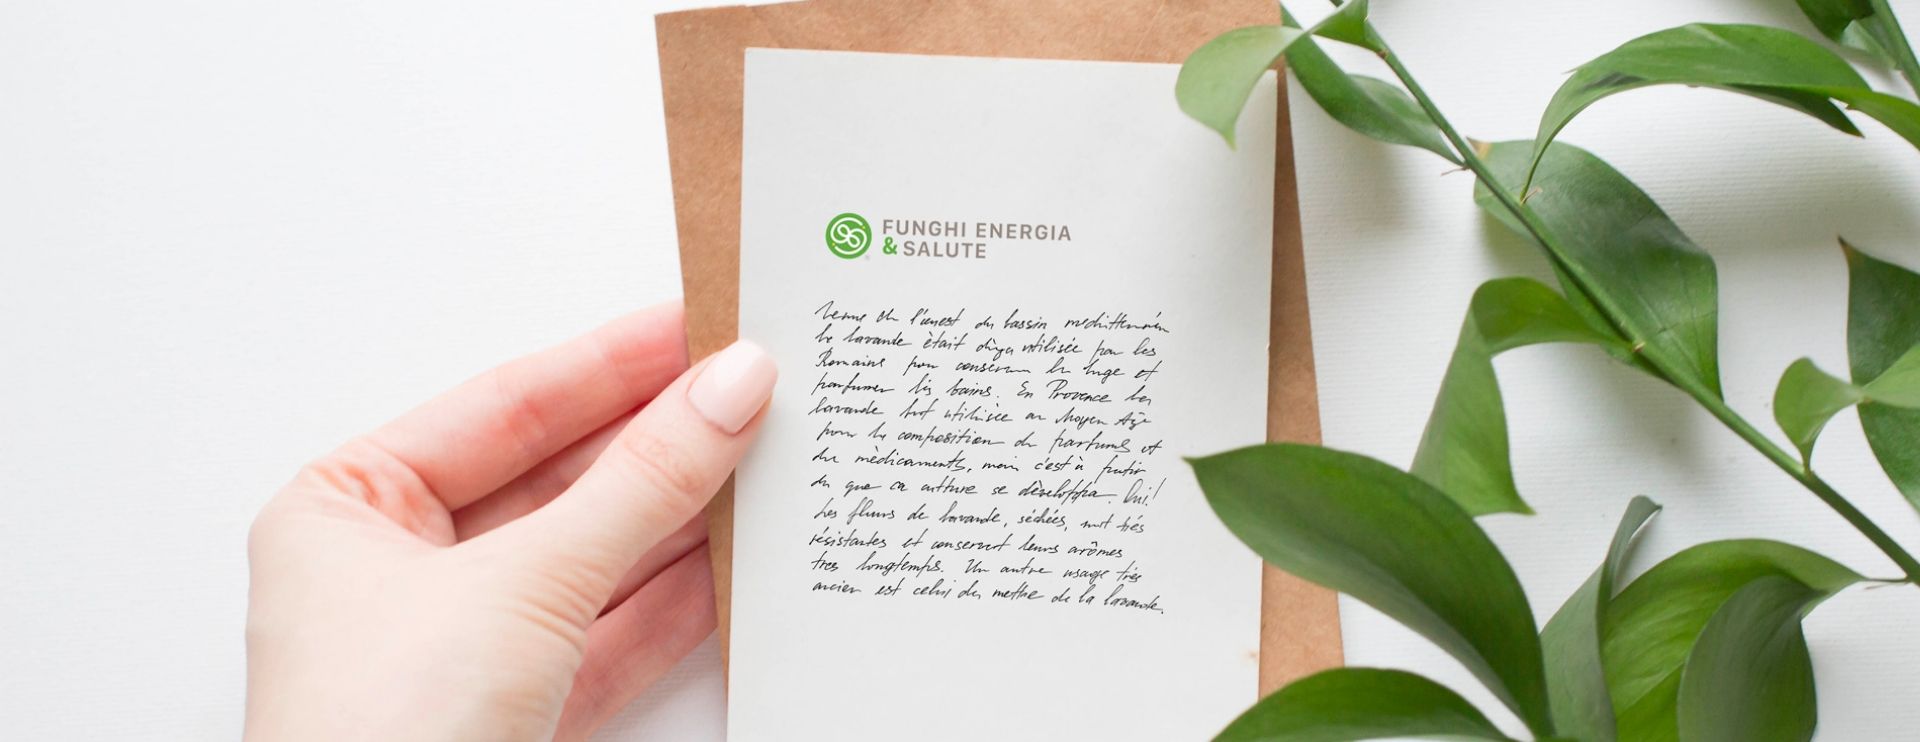 FUNGHI ENERGIA
& SALUTE
Venue de l'ouest du bassin mediterranéen
la lavande ètait dèja utilisée par les
Romains pour conserver le linge et
parfumer les bains. En Provence la
lavande fut utilisée au Moyen Age
pour la composition de parfums et
du mèdicaments, mais c'est à partir
du que ca culture se dèveloppa. Oui!
Les fleurs de lavande, séchées, sont trés
résistantes et conservent leurs arômes
tres longtemps. Un autre usage trés
ancien est celui du mettre de la lavande.